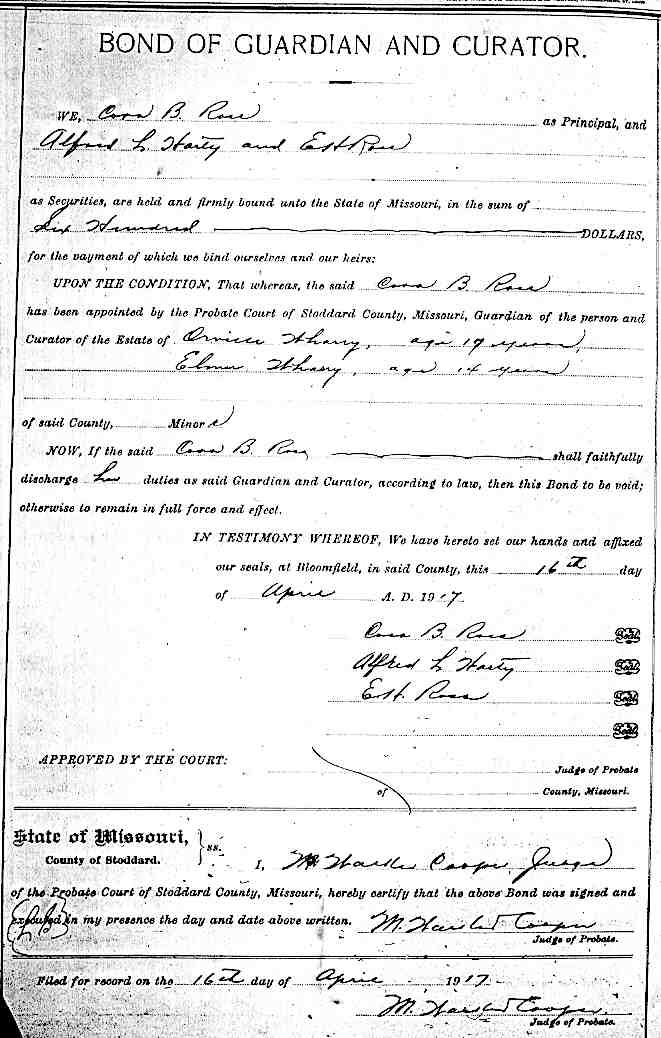 BOND OF GUARDIAN AND CURATOR.
WE, Cora B. Ross as Principal, and
Alfred L. Harty and E H Ross
as Securities, are held and firmly bound unto the State of Missouri, in the sum of
Six Hundred DOLLARS,
for the payment of which we bind ourselves and our heirs:
UPON THE CONDITION, That whereas, the said Cora B. Ross
has been appointed by the Probate Court of Stoddard County, Missouri, Guardian of the person and
Curator of the Estate of age 19 years,
Elmer age 14 years
of said County, Minors
NOW, If the said Cora B. Ross shall faithfully
discharge her duties as said Guardian and Curator, according to law, then this Bond to be void;
otherwise to remain in full force and effect.
IN TESTIMONY WHEREOF, We have hereto set our hands and affixed
our seals, at Bloomfield, in said County, this 16th day
of April A. D. 1917
Cora B. Ross Seal
Alfred L. Harty Seal
E.H. Ross Seal
Seal
APPROVED BY THE COURT:
Judge of Probate
of County, Missouri.
State of Missouri,
County of Stoddard. } ss. I, Cooper Judge
of the Probate Court of Stoddard County, Missouri, hereby certify that the above Bond was signed and
executed in my presence the day and date above written. M. Cooper
Judge of Probate.
Filed for record on the 16th day of April 1917
M. Cooper
Judge of Probate.